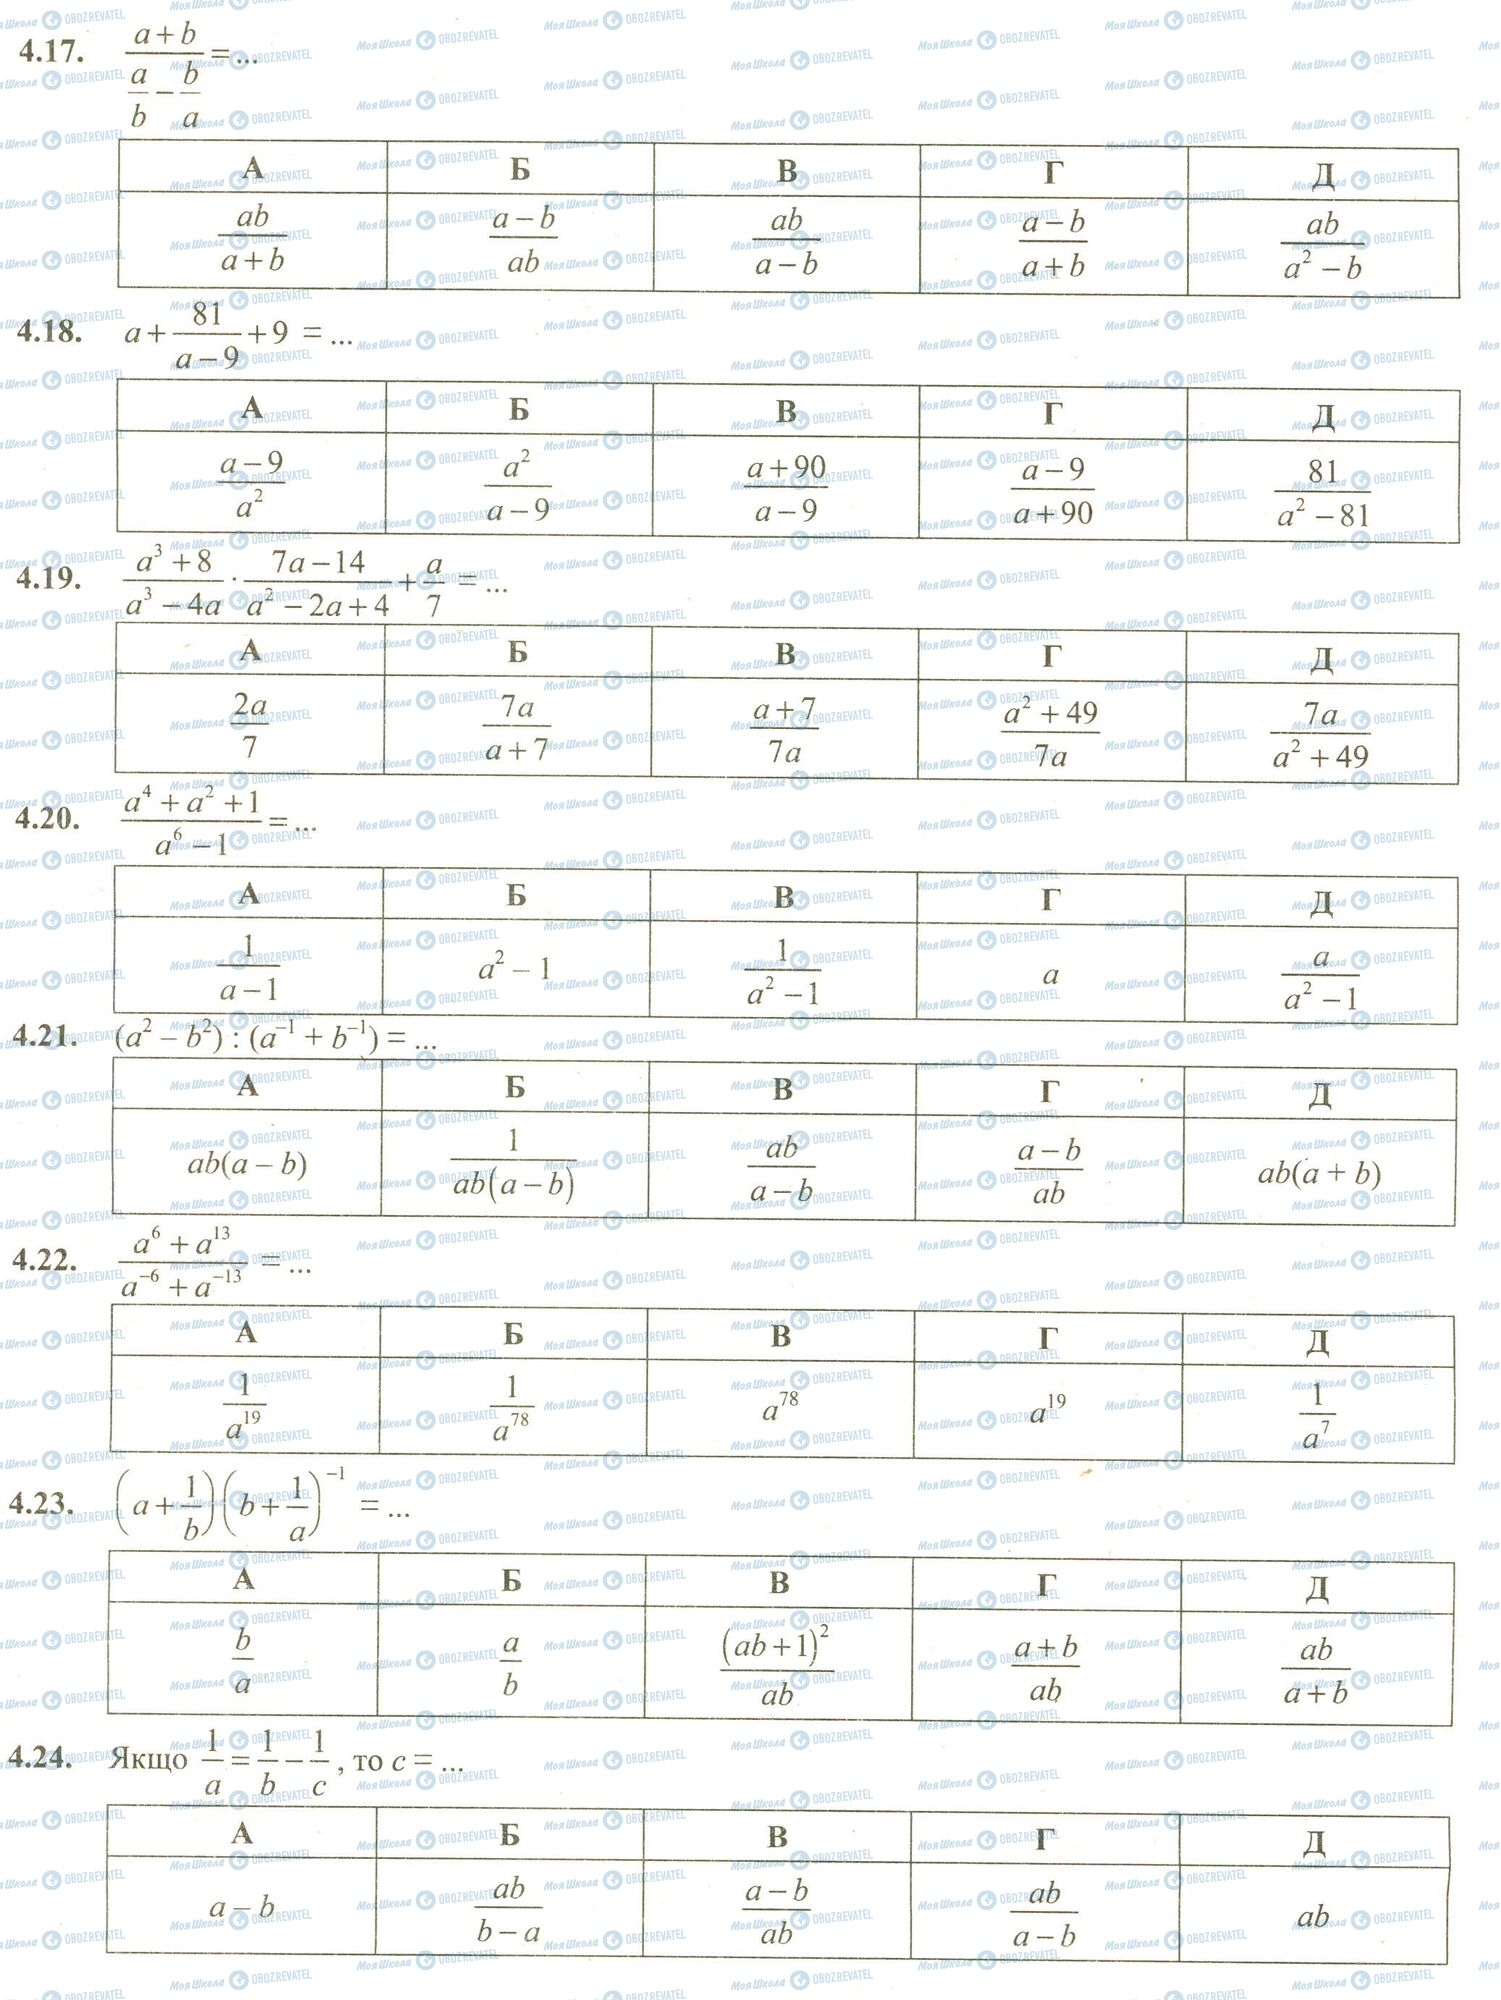 4.17. \frac{a+b}{\frac{a}{b}-\frac{b}{a}} = ...
А Б В Г Д
\frac{ab}{a+b} \frac{a-b}{ab} \frac{ab}{a-b} \frac{a-b}{a+b} \frac{ab}{a^2-b}
4.18. a+\frac{81}{a-9}+9 = ...
А Б В Г Д
\frac{a-9}{a^2} \frac{a^2}{a-9} \frac{a+90}{a-9} \frac{a-9}{a+90} \frac{81}{a^2-81}
4.19. \frac{a^3+8}{a^3-4a}·\frac{7a-14}{a^2-2a+4}+\frac{a}{7} = ...
А Б В Г Д
\frac{2a}{7} \frac{7a}{a+7} \frac{a+7}{7a} \frac{a^2+49}{7a} \frac{7a}{a^2+49}
4.20. \frac{a^4+a^2+1}{a^6-1} = ...
А Б В Г Д
\frac{1}{a-1} a^2-1 \frac{1}{a^2-1} a \frac{a}{a^2-1}
4.21. (a^2-b^2) : (a^{-1}+b^{-1}) = ...
А Б В Г Д
ab(a-b) \frac{1}{ab(a-b)} \frac{ab}{a-b} \frac{a-b}{ab} ab(a+b)
4.22. \frac{a^6+a^{13}}{a^{-6}+a^{-13}} = ...
А Б В Г Д
\frac{1}{a^{19}} \frac{1}{a^{78}} a^{78} a^{19} \frac{1}{a^7}
4.23. (a+\frac{1}{b})(b+\frac{1}{a})^{-1} = ...
А Б В Г Д
\frac{b}{a} \frac{a}{b} \frac{(ab+1)^2}{ab} \frac{a+b}{ab} \frac{ab}{a+b}
4.24. Якщо \frac{1}{a}=\frac{1}{b}-\frac{1}{c}, то c = ...
А Б В Г Д
a-b \frac{ab}{b-a} \frac{a-b}{ab} \frac{ab}{a-b} ab
Моя Школа OBOZREVATEL